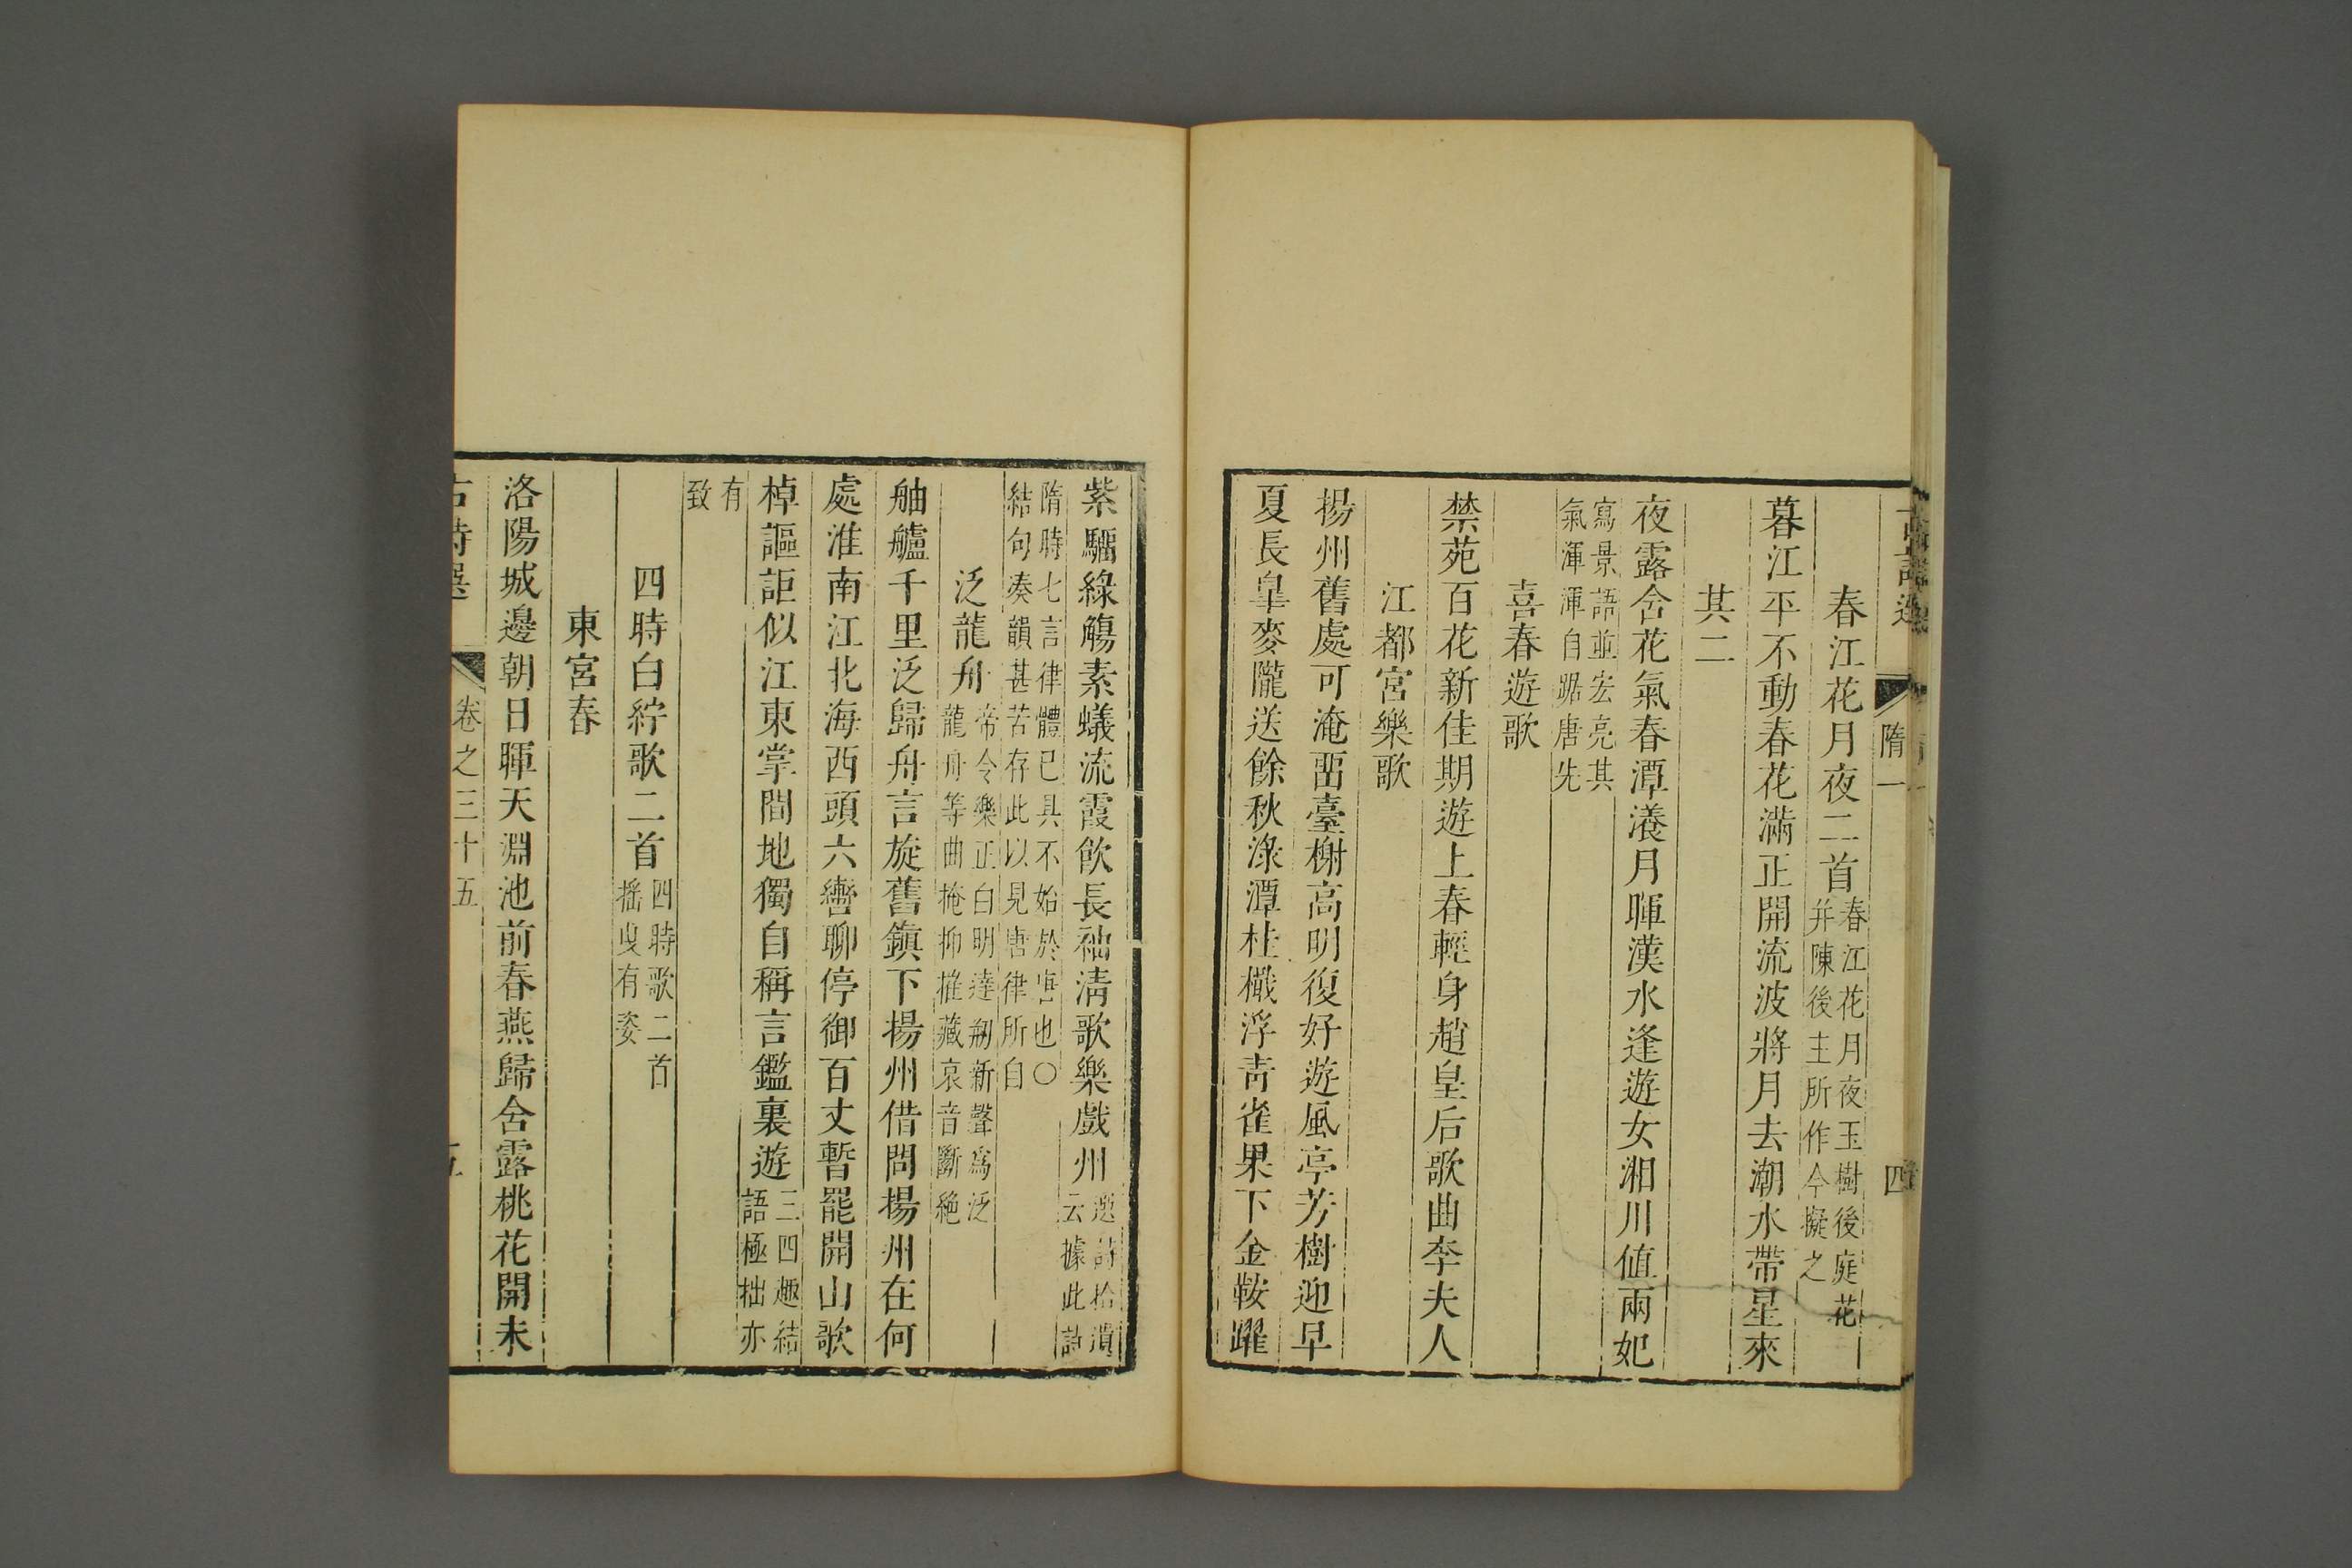 隋一
四
春江花月夜二首春江花月夜玉樹後庭花
并陳後主所作今擬之
暮江平不動春花滿正開流波將月去潮水帶星來
其二
夜露含花氣春潭瀁月暉漢水逢遊女湘川値兩妃
寫景語並宏亮其
氣渾渾自踞唐先
喜春遊歌
禁苑百花新佳期遊上春輕身趙皇后歌曲李夫人
江都宮樂歌
揚州舊處可淹畱臺榭高明復好遊風亭芳樹迎早
夏長皐麥隴送餘秋淥潭桂檝浮青雀果下金鞍躍
紫騮綠觴素蟻流霞飲長袖淸歌樂戲州選詩拾遺
云據此詩
隋時七言律體已具不始於唐也○
結句湊韻甚苦存此以見唐律所自
泛龍舟帝令樂正白明達剏新聲爲泛
龍舟等曲掩抑摧藏哀音斷絶
舳艫千里泛歸舟言旋舊鎭下揚州借問揚州在何
處淮南江北海西頭六轡聊停御百丈暫罷開山歌
棹謳詎似江東掌間地獨自稱言鑑裏遊三四趣結
語極拙亦
有
致
四時白紵歌二首四時歌二首
搖曳有姿
東宮春
洛陽城邊朝日暉天淵池前春燕歸含露桃花開未
古詩選
卷之三十五
五